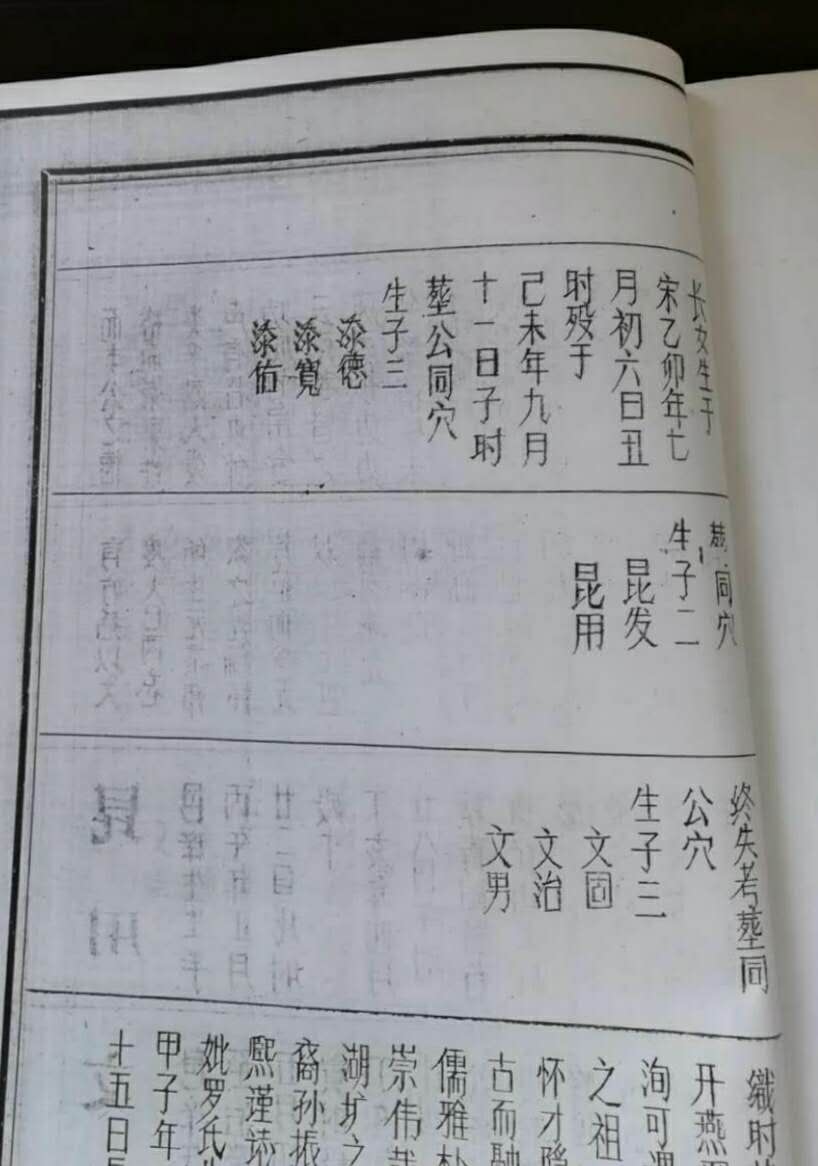 长女生于
宋乙卯年七
月初六日丑
时殁于
己未年九月
十一日子时
葬公同穴
生子三
添德
添寬
添佑
葬同穴
生子二
昆发
昆用
终失考葬同
公穴
生子三
文固
文治
文男
織时
开燕
洵可谓
之祖
怀才隐
古而融
儒雅朴
崇伟
湖圹之
裔孙振
熙谨
妣罗氏
甲子年
十五日